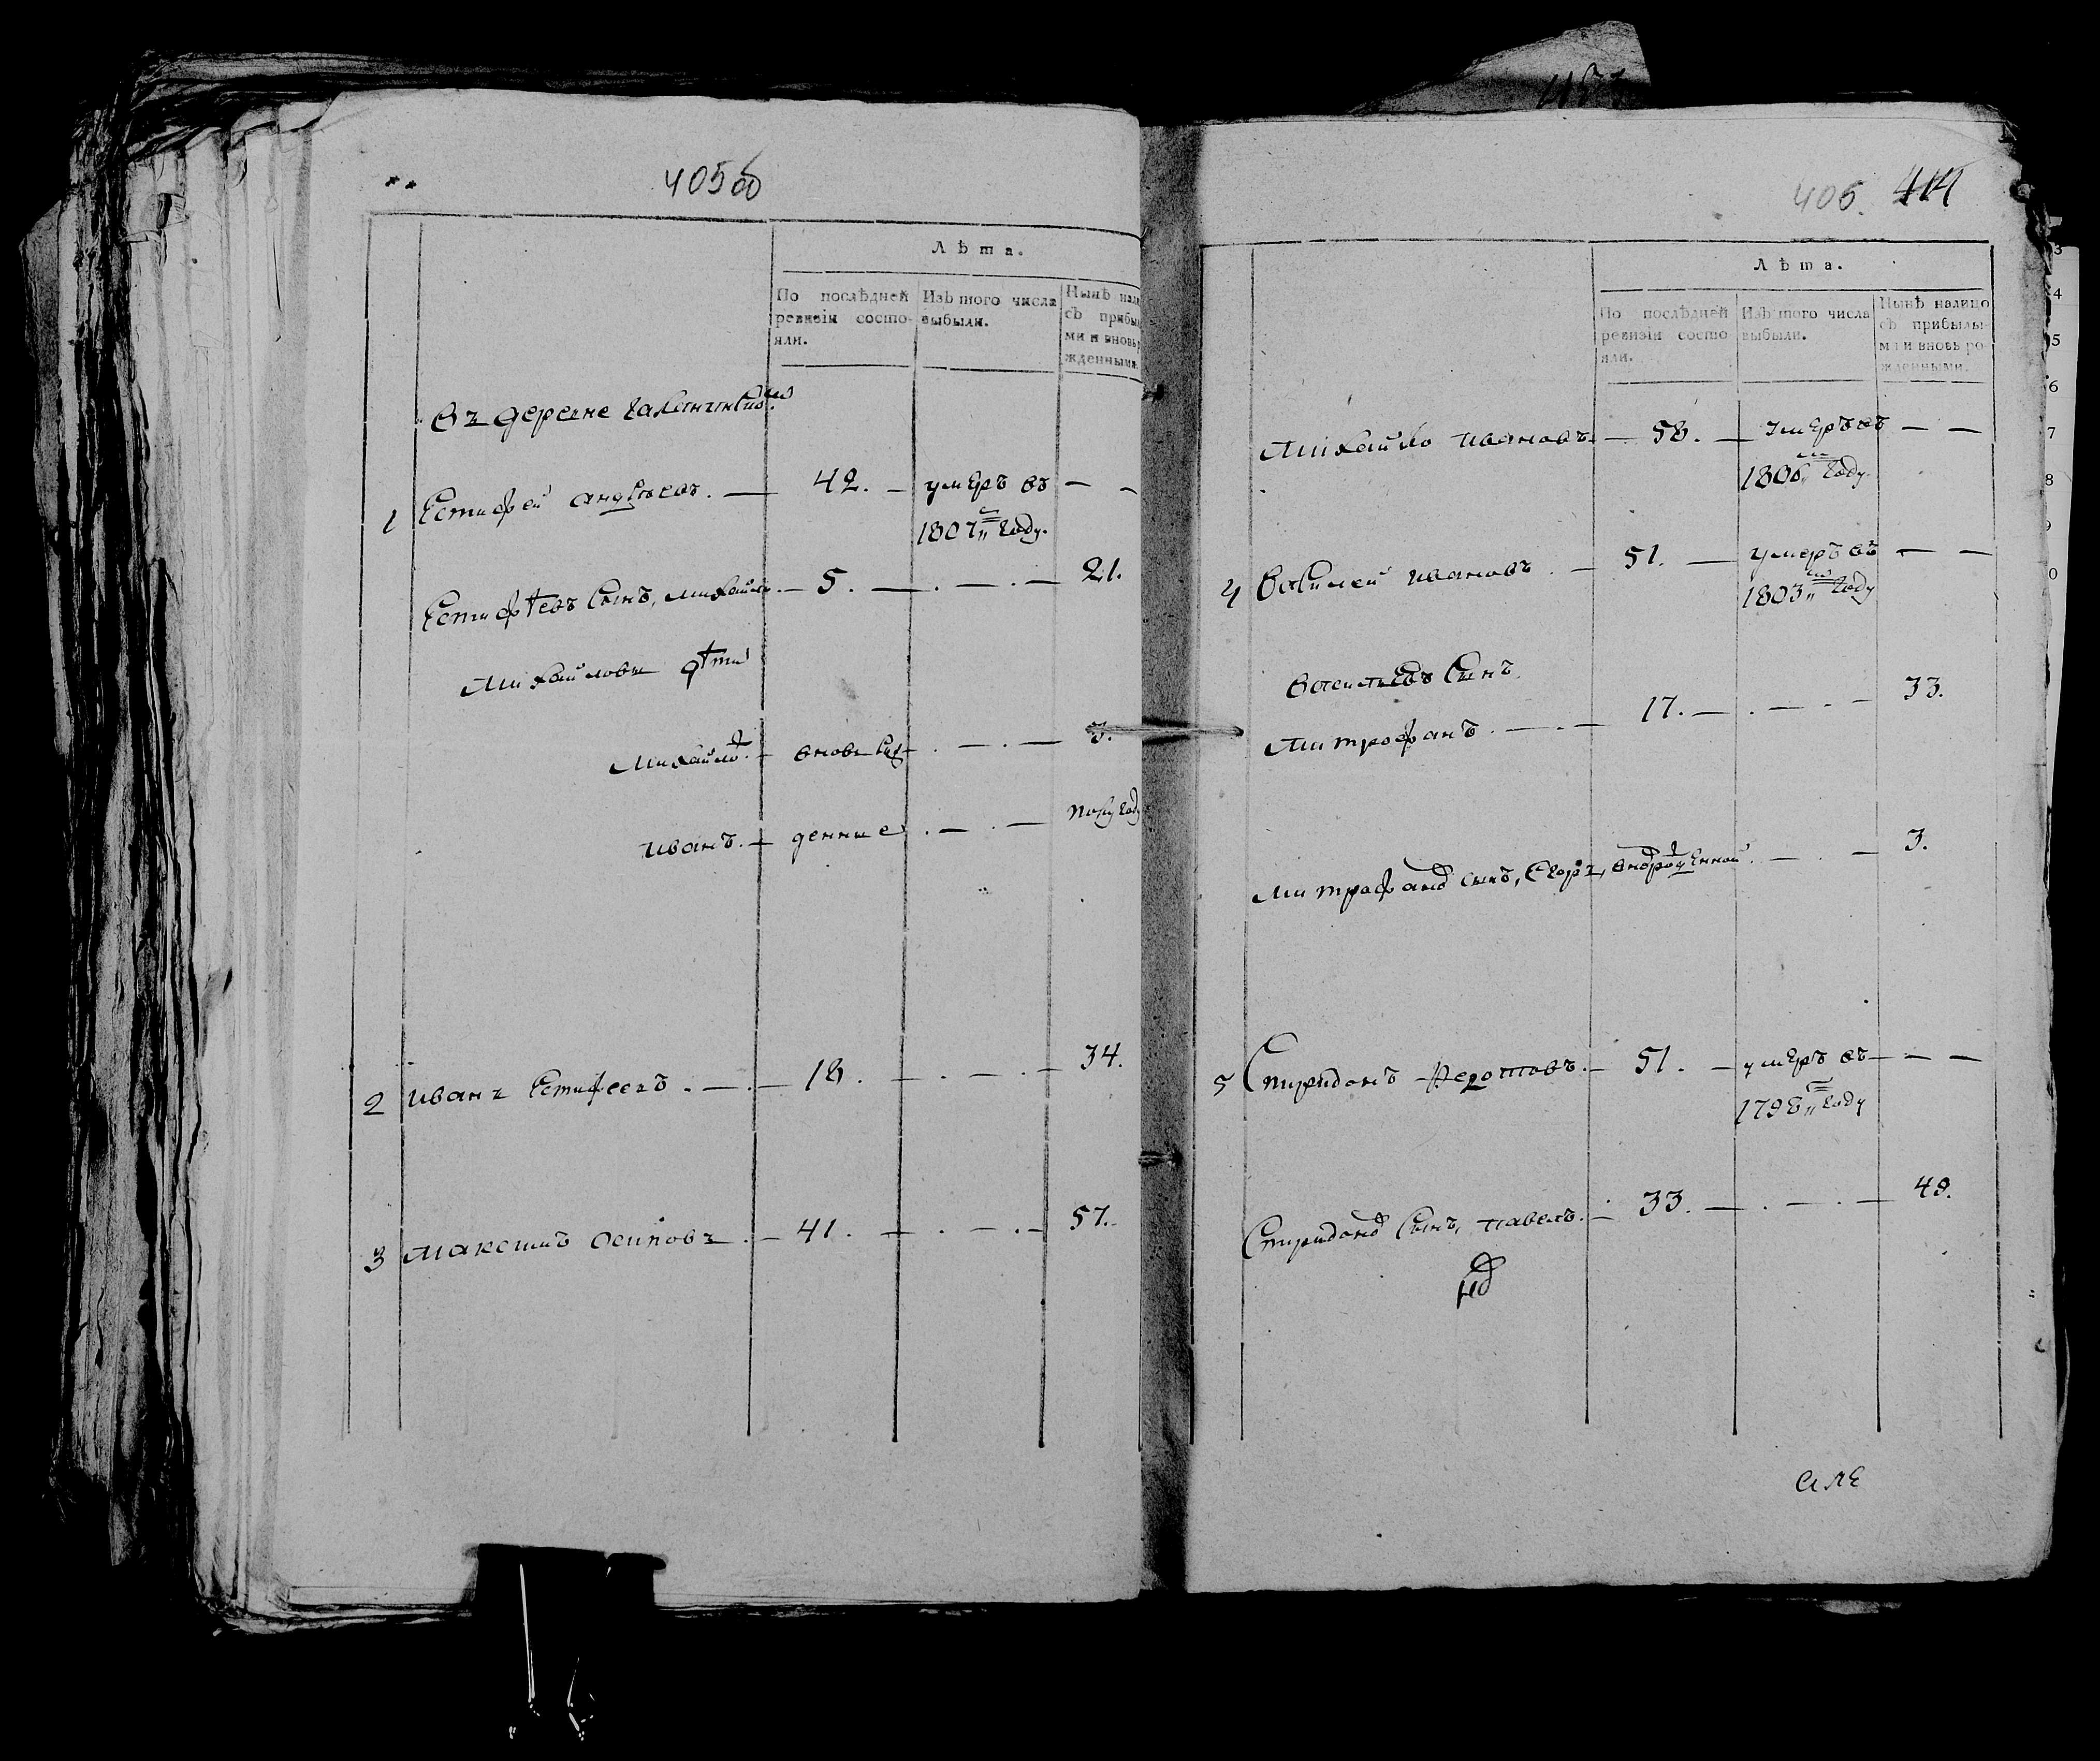 405 об
Лѣта.
По послѣдней ревизіи состояли.
Изъ того числа выбыли.
Нынѣ нали
съ прибы
ми и вновь р
жденными.
Въ деревне
1 Естифей Андреевъ. — 42. — умеръ въ — —
1807м году.
Естифѣевъ сынъ, Михайло. — 5. — . — . — 21.
Михайловы дѣти
Михайло. — вновь рож — . — . — 3.
Иванъ. — денные . — . — полугоду
2 Иванъ Естифеевъ . — . — 18. — . — . — 34.
3 Максимъ Осиповъ . — 41. — . — . — 57.
406. 414
Лѣта.
По послѣдней ревизіи состояли.
Изъ того числа выбыли.
Нынѣ налицо съ прибылыми и вновь рожденными.
Михайло Ивановъ. — 58. — умеръ въ — —
1806м году.
4 Василей Ивановъ . — 51. — умеръ въ — —
1803м году
Васильевъ сынъ
Митрофанъ . — . — 17. — . — . — 33.
Митрофано сынъ, Егоръ, внорожденной . — . — 3.
5 Спиридонъ Федотовъ. — 51. — умеръ въ — —
1798м году
Спиридоно сынъ, Павелъ. — 33. — . — . — 49.
але